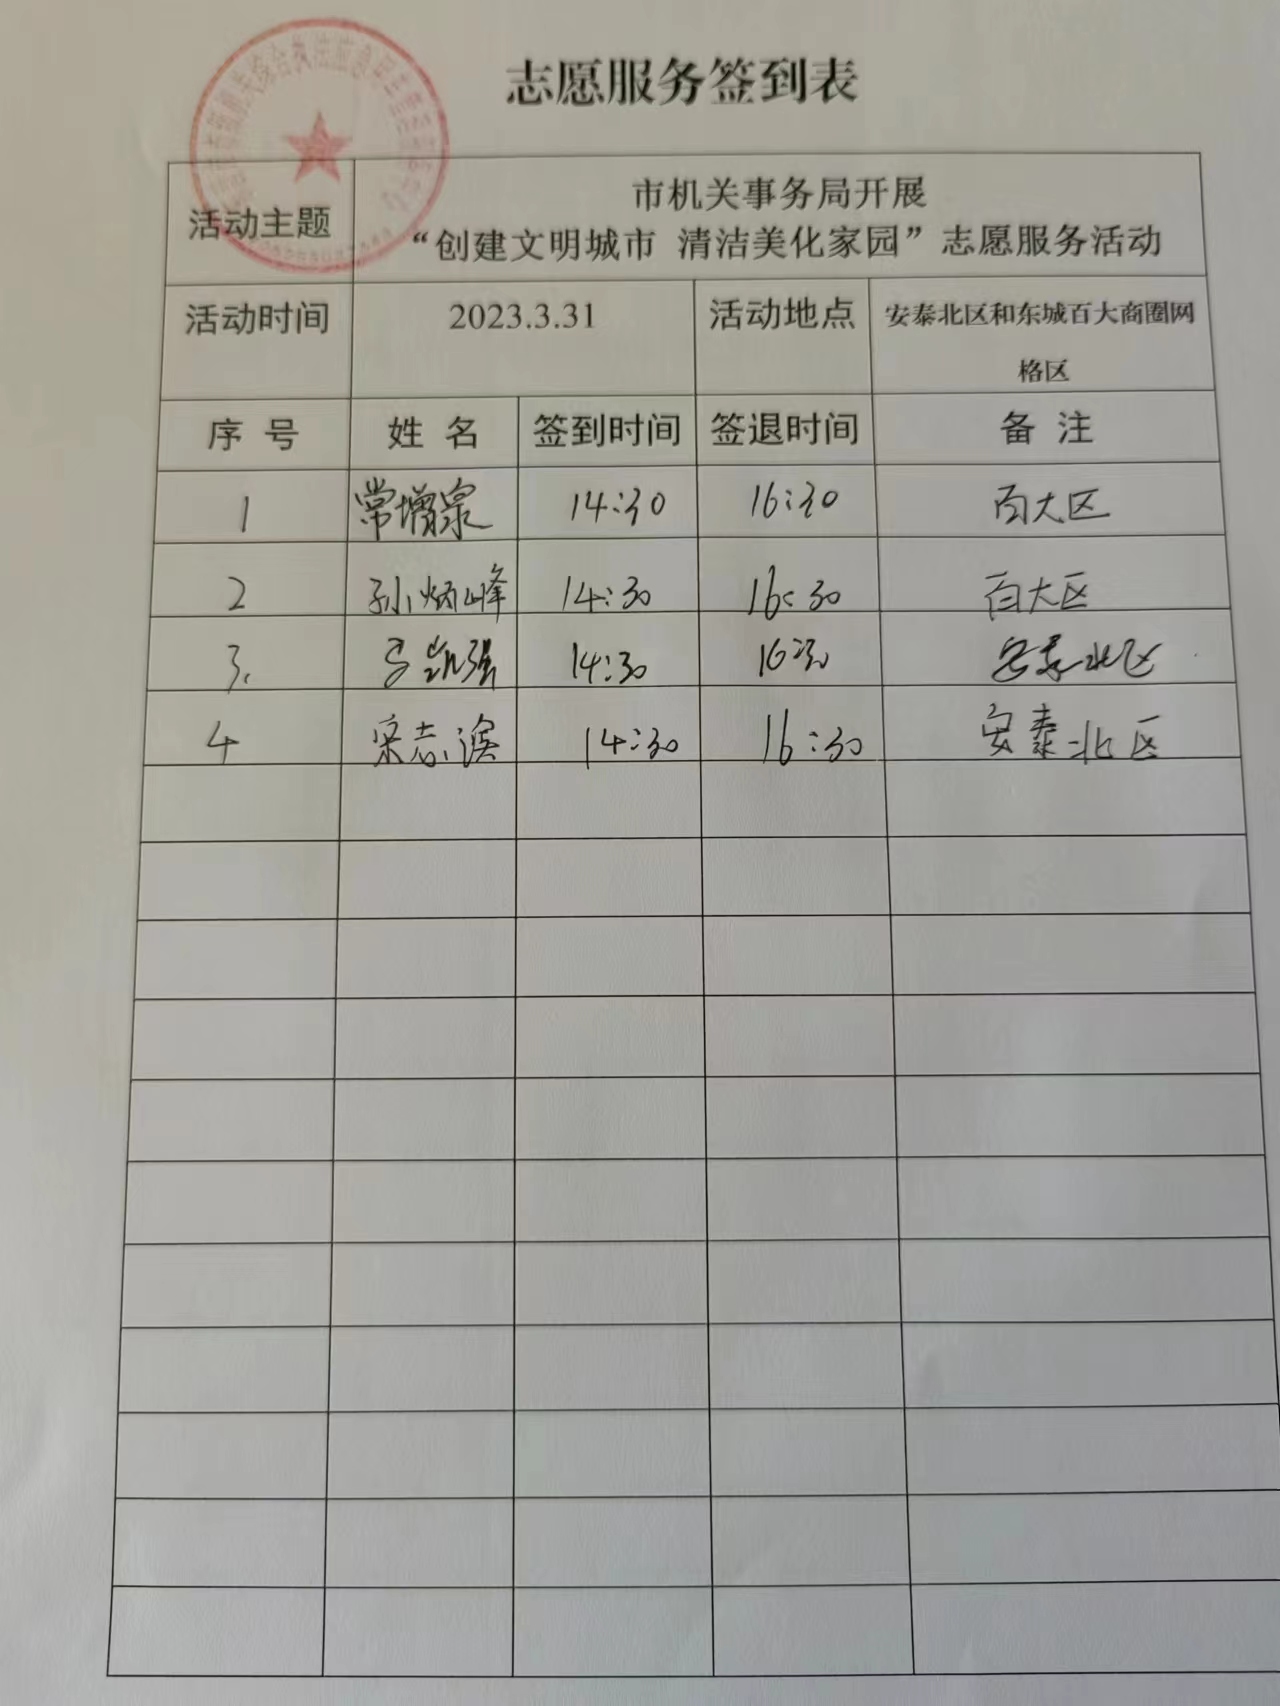 志愿服务签到表
活动主题
市机关事务局开展
“创建文明城市 清洁美化家园”志愿服务活动
活动时间 2023.3.31 活动地点 安泰北区和东城百大商圈网
格区
序 号 姓 名 签到时间 签退时间 备 注
1 常增泉 14:30 16:30 百大区
2 孙炳峰 14:30 16:30 百大区
3. 凯强 14:30 16:30 安泰北区
4 宋志 14:30 16:30 安泰北区